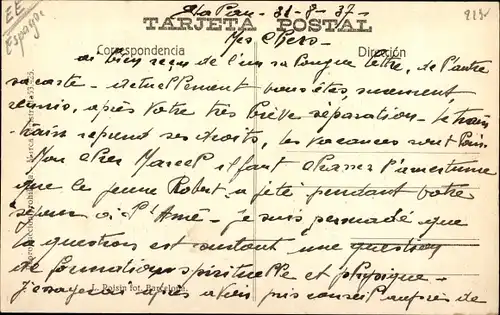 EE
Espagne
31-8-37-
213-
TARJETA POSTAL
Mes Chers-
Correspondencia
Dirección
ai bien reçu de l'un sa longue lettre, de l'autre
sa carte - Actuellement vous êtes sûrement
réunis, après votre très brève séparation - le train
train reprend ses droits, les vacances sont finies.
Mon cher Marcel il faut chasser l'amertume
que le jeune Robert a jeté pendant votre
séjour - je suis persuadé que
la question est surtout une question
de formation spirituelle et physique -
J'essayerai après avoir pris conseil auprès de
L. Roisin fot. Barcelona.